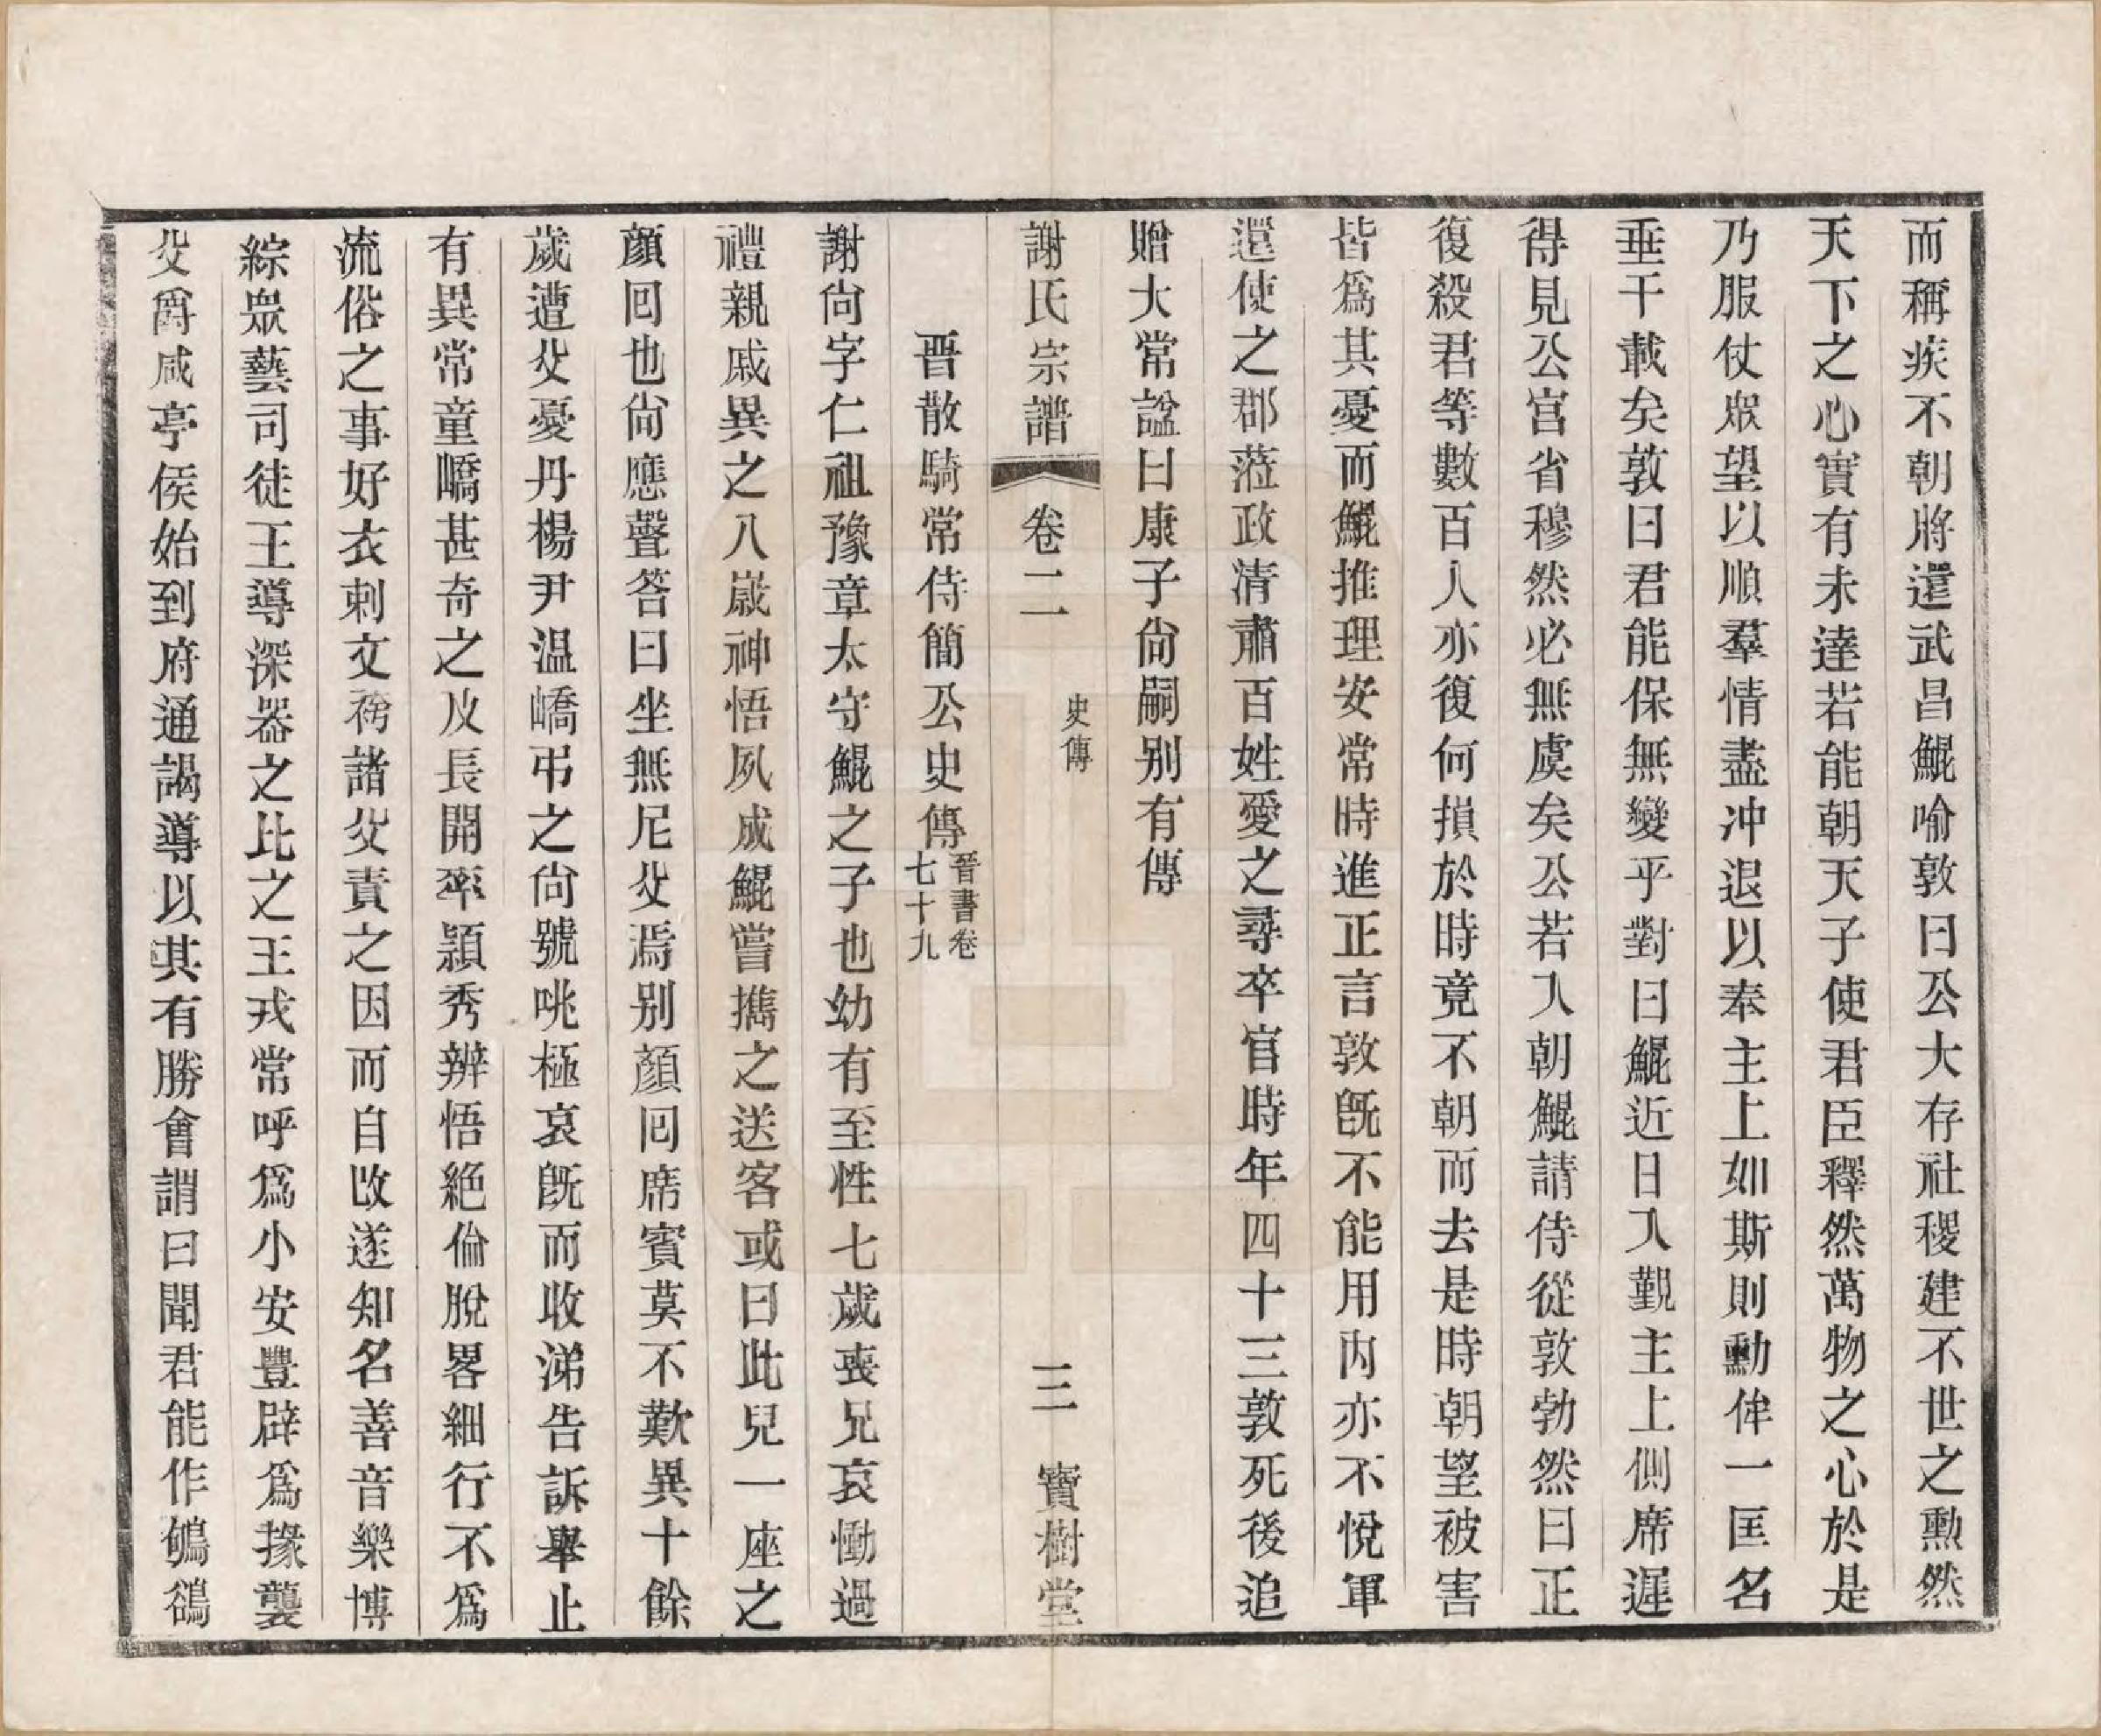 而稱疾不朝將還武昌鯤喻敦曰公大存社稷建不世之勲然
天下之心實有未達若能朝天子使君臣釋然萬物之心於是
乃服仗衆望以順羣情盡冲退以奉主上如斯則勳侔一匡名
垂千載矣敦曰君能保無變乎對曰鯤近日入覲主上側席遲
得見公宫省穆然必無虞矣公若入朝鯤請侍從敦勃然曰正
復殺君等數百人亦復何損於時竟不朝而去是時朝望被害
皆爲其憂而鯤推理安常時進正言敦旣不能用内亦不悅軍
還使之郡蒞政清肅百姓愛之尋卒官時年四十三敦死後追
贈大常諡曰康子尙嗣别有傳
謝氏宗譜 卷二 史傳 三 寶樹堂
晋散騎常侍簡公史傳 晉書卷七十九
謝尙字仁祖豫章太守鯤之子也幼有至性七歲喪兄哀慟過
禮親戚異之八歲神悟夙成鯤嘗攜之送客或曰此兒一座之
顏囘也尙應聲答曰坐無尼父焉别顏囘席賓莫不歎異十餘
歲遭父憂丹楊尹温嶠弔之尙號咷極哀旣而收涕告訴舉止
有異常童嶠甚奇之及長開率穎秀辨悟絶倫脫畧細行不爲
流俗之事好衣刺文袴諸父責之因而自改遂知名善音樂博
綜衆藝司徒王導深器之比之王戎常呼爲小安豐辟爲掾襲
父爵咸亭侯始到府通謁導以其有勝會謂曰聞君能作鴝鵒